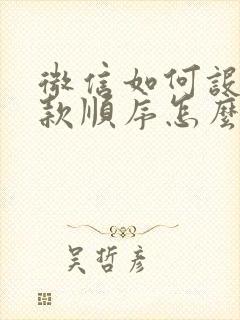 微信如何設
款順序怎麼
吳哲彥